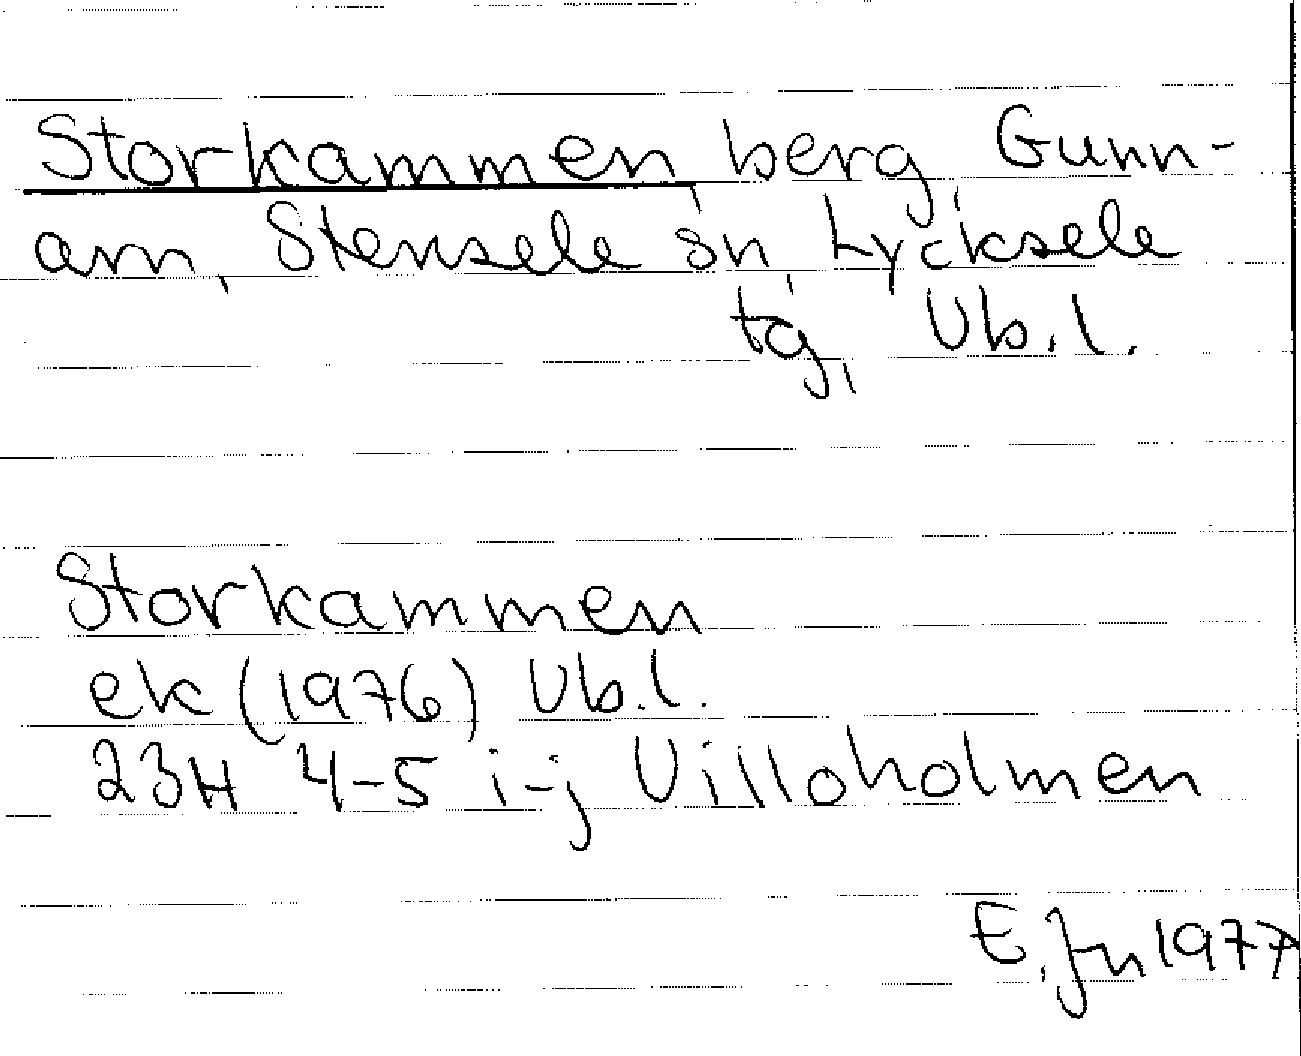 Storkammen berg, Gunn-
arn, Stensele sn, Lycksele
tg, Vb.l.
Storkammen
ek (1976) Vb.l.
23H 4-5 i-j Villoholmen
E. Jn 1977